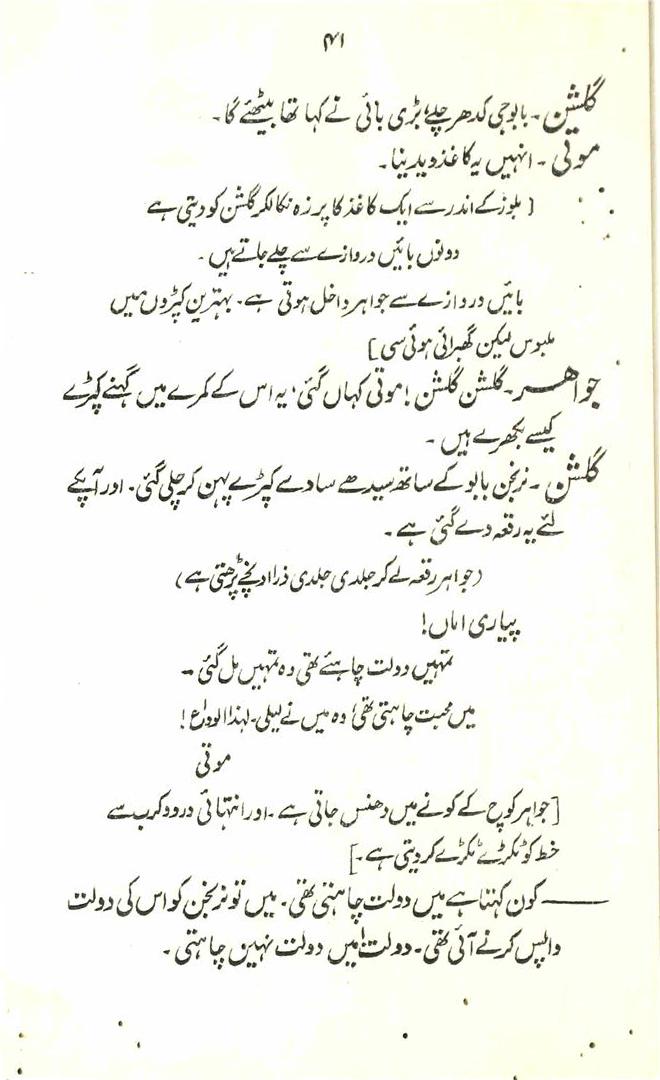 ۴۱
گلشن ۔ بابوجی کدھر چلے؟ بڑی بائی نے کہا تھا بیٹھئے گا۔
موتی ۔ انہیں یہ کاغذ دیدینا۔
[ بلوز کے اندر سے ایک کاغذ کا پرزہ نکالکر گلشن کو دیتی ہے
دونوں بائیں دروازے سے چلے جاتے ہیں ۔
بائیں دروازے سے جواہر داخل ہوتی ہے۔ بہترین کپڑوں میں
ملبوس لیکن گھبرائی ہوئی سی ]
جواہر ۔ گلشن گلشن ! موتی کہاں گئی، یہ اس کے کمرے میں گہنے کپڑے
کیسے بکھرے ہیں ۔
گلشن ۔ نرنجن بابو کے ساتھ سیدھے سادے کپڑے پہن کر چلی گئی۔ اور آپکے
لئے یہ رقعہ دے گئی ہے ۔
(جواہر رقعہ لے کر جلدی جلدی ذرا اونچے پڑھتی ہے)
پیاری اماں!
تمہیں دولت چاہئے تھی وہ تمہیں مل گئی ۔
میں محبت چاہتی تھی، وہ میں نے لیلی۔ لہذا الوداع !
موتی
[جواہر کوچ کے کونے میں دھنس جاتی ہے ۔ اور انتہائی درد و کرب سے
خط کو ٹکڑے ٹکڑے کر دیتی ہے۔]
—— کون کہتا ہے میں دولت چاہتی تھی۔ میں تو نرنجن کو اس کی دولت
واپس کرنے آئی تھی۔ دولت! میں دولت نہیں چاہتی ۔